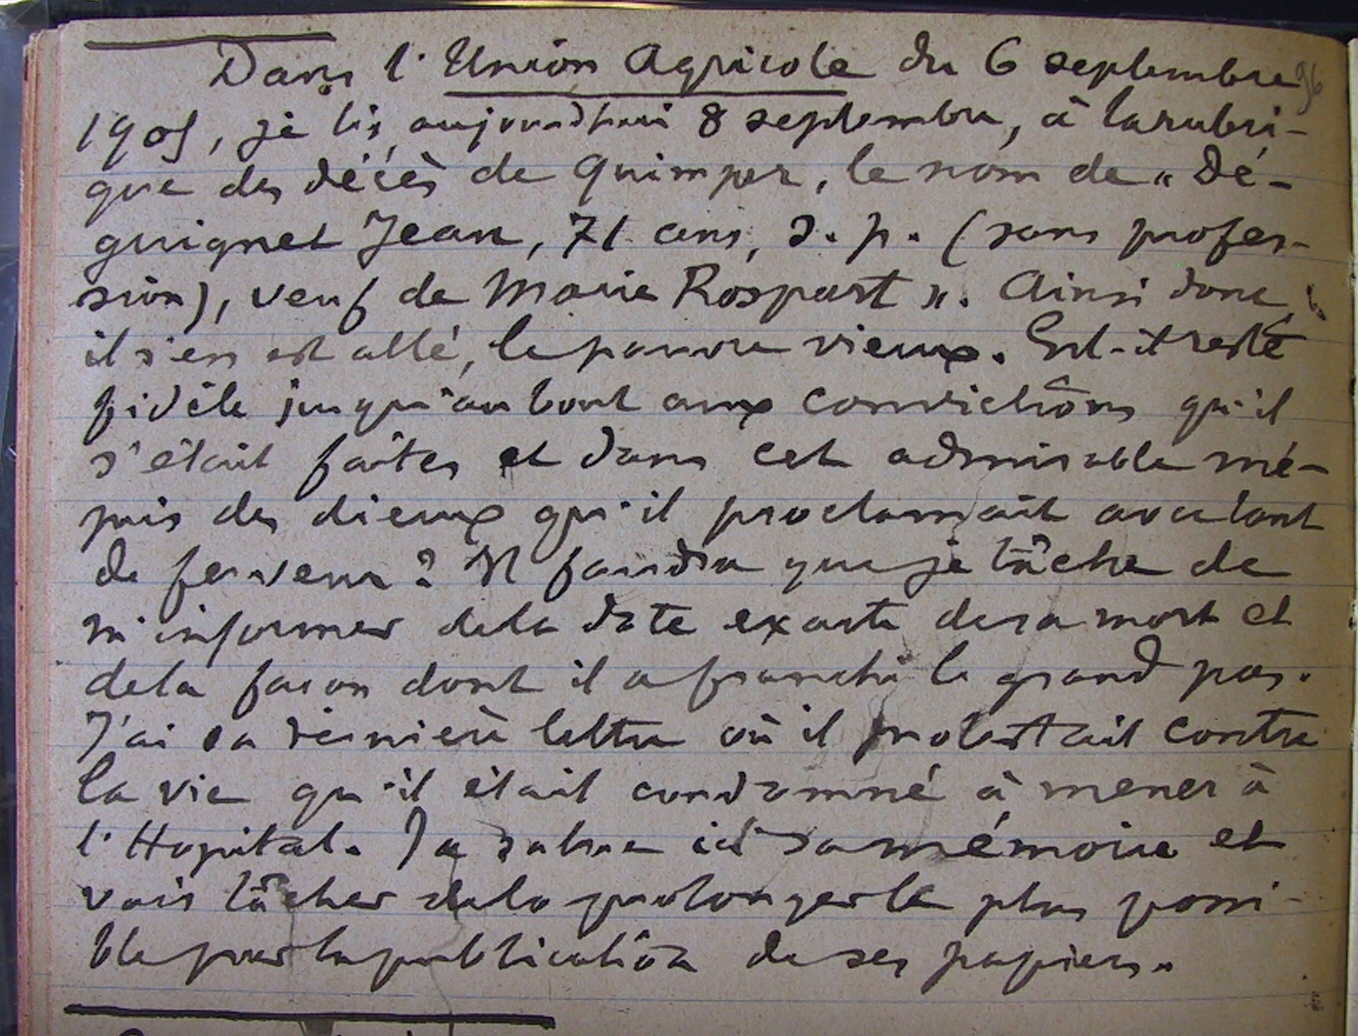 Dans l'Union Agricole du 6 septembre
1905, je lis, aujourd'hui 8 septembre, à la rubri-
que des décès de Quimper, le nom de « Dé-
guignet Jean, 71 ans, s. p. (sans profes-
sion), veuf de Marie Rospart ». Ainsi donc,
il s'en est allé, le pauvre vieux. Est-il resté
fidèle jusqu'au bout aux convictions qu'il
s'était faites et dans cet admirable mé-
pris des dieux qu'il proclamait avec tant
de ferveur ? Il faudra que je tâche de
m'informer de la date exacte de sa mort et
de la façon dont il a franchi le grand pas.
J'ai sa dernière lettre où il protestait contre
la vie qu'il était condamné à mener à
l'Hopital. Je salue ici sa mémoire et
vais tâcher de la prolonger le plus possi-
ble par la publication de ses papiers.